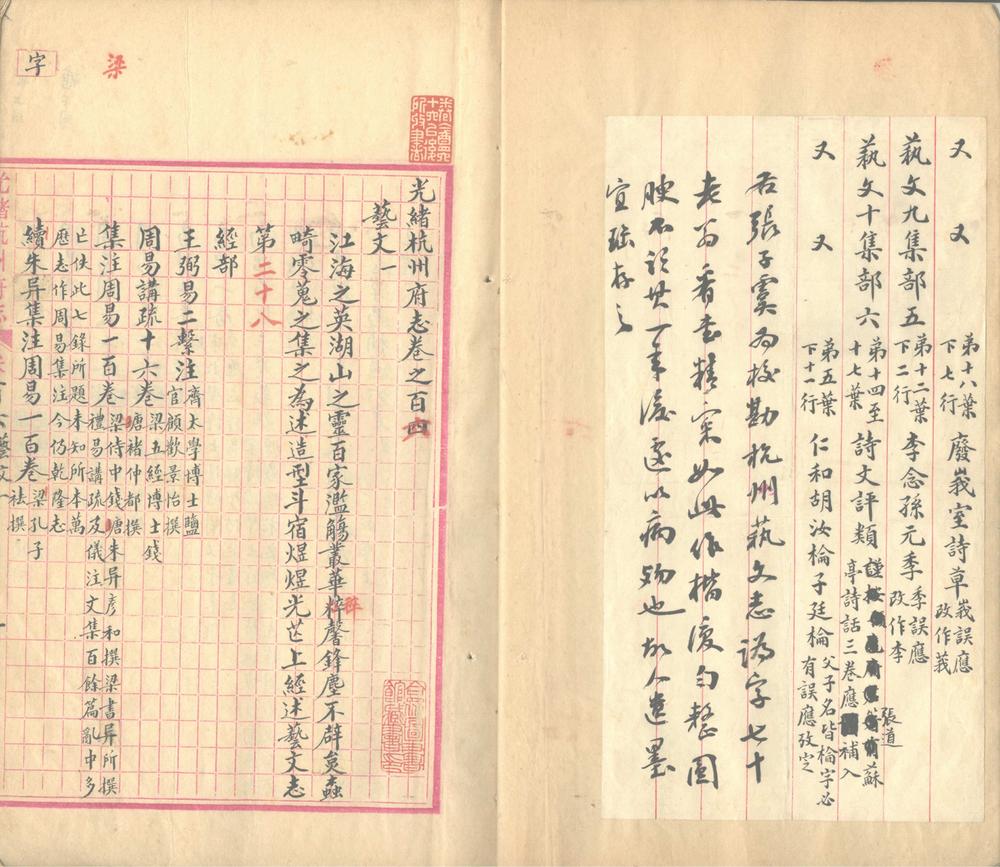 又 又 第十八葉下七行 廢莪室詩草 莪誤應改作羲
藝文九集部五 第十二葉下二行 李念孫元季 季誤應改作李
藝文十集部六 第十四至十七葉 詩文評類 蘇亭詩話三卷應補入
張道
又 又 第五葉下十一行 仁和胡汝棆子廷棆 父子名皆棆字必有誤應改定
右張子虞為校勘杭州藝文志譌字七十
老翁看書精案如此作楷復勻整圓
腴不謂其一年後遽以病歿也故人遺墨
宜珍存之
光緒杭州府志卷之百四
藝文一
江海之英湖山之靈百家濫觴叢華粹馨鋒麈不辟炱蟲
畸零蒐之集之為述造型斗宿煜煜光芒上經述藝文志
第二十八
經部
王弼易二繫注 齊太學博士鹽官顧歡景怡撰
周易講疏十六卷 梁五經博士錢唐褚仲都撰
集注周易一百卷 梁侍中錢唐朱异彥和撰梁書异所撰禮易講疏及儀注文集百餘篇亂中多
亡佚此七錄所題未知所本萬歷志作周易集注今仍乾隆志
續朱异集注周易一百卷 梁孔子袪撰
梁
字